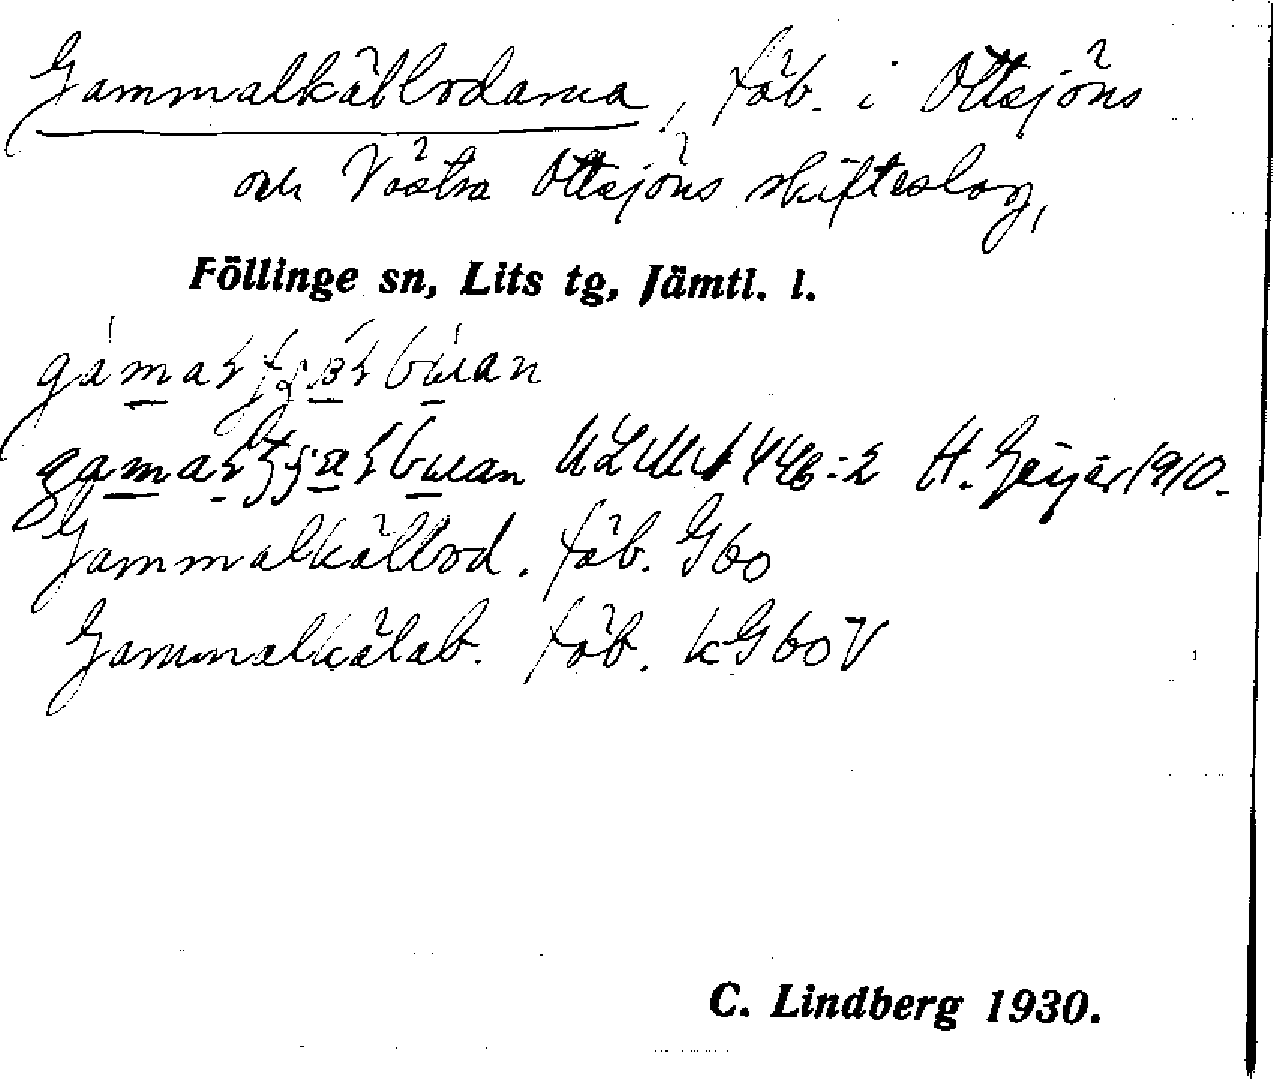 Gammalkälbodarna, fäb. i Ottsjöns
och Västra Ottsjöns skifteslag,
Föllinge sn, Lits tg, Jämtl. l.
ULMA 446:2 H. Geijer 1910.
Gammalkälbod. fäb. G60
Gammalkälab. fäb. kG60V
C. Lindberg 1930.